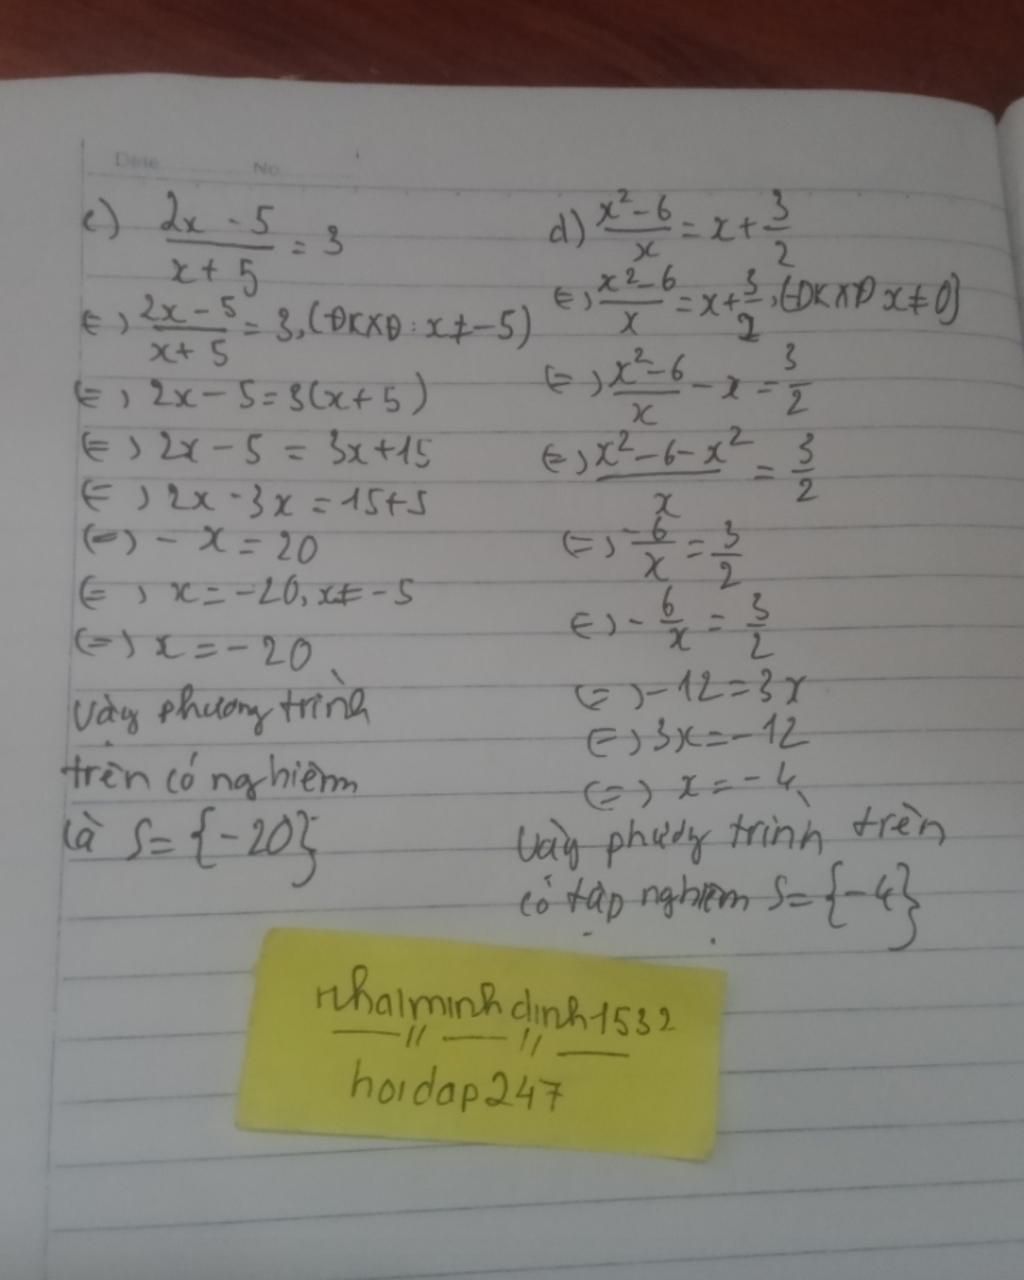 Date No
c) (2x - 5)/(x + 5) = 3
⇔ (2x - 5)/(x + 5) = 3, (ĐKXĐ : x ≠ -5)
⇔ 2x - 5 = 3(x + 5)
⇔ 2x - 5 = 3x + 15
⇔ 2x - 3x = 15 + 5
⇔ - x = 20
⇔ x = -20, x ≠ -5
⇔ x = -20
Vậy phương trình
trên có nghiệm
là S = {-20}
d) (x² - 6)/x = x + 3/2
⇔ (x² - 6)/x = x + 3/2, (ĐKXĐ x ≠ 0)
⇔ (x² - 6)/x - x = 3/2
⇔ (x² - 6 - x²)/x = 3/2
⇔ -6/x = 3/2
⇔ - 6/x = 3/2
⇔ -12 = 3x
⇔ 3x = -12
⇔ x = -4
Vậy phương trình trên
có tập nghiệm S = {-4}
nhaiminhdinh1532
hoidap247